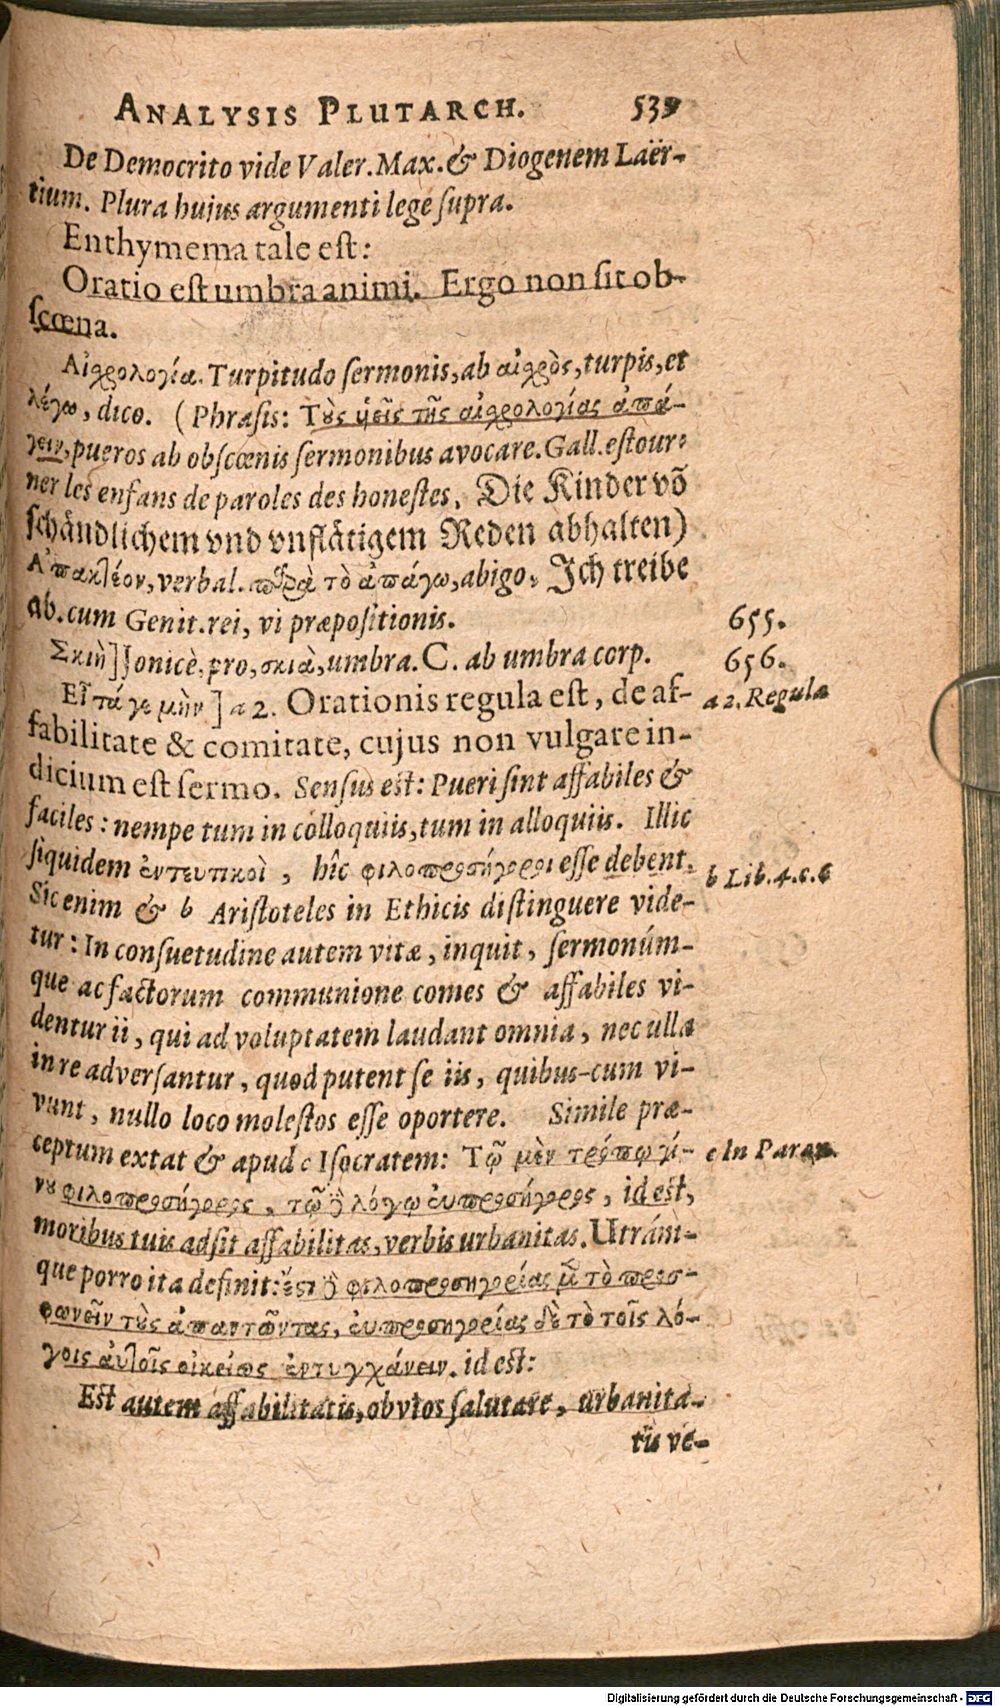 ANALYSIS PLUTARCH. 539
De Democrito vide Valer. Max. & Diogenem Laër-
tium. Plura hujus argumenti lege supra.
Enthymema tale est:
Oratio est umbra animi. Ergo non sit ob-
scœna.
Αἰσχρολογία. Turpitudo sermonis, ab αἰσχρὸς, turpis, et
λέγω, dico. (Phrasis: Τοὺς υἱεῖς τῆς αἰσχρολογίας ἀπά-
γειν, pueros ab obscœnis sermonibus avocare. Gall. estour-
ner les enfans de paroles des honestes. Die Kinder võ
schändlichem vnd vnflätigem Reden abhalten)
Ἀπακτέον, verbal. παρὰ τὸ ἀπάγω, abigo, Jch treibe
ab. cum Genit. rei, vi præpositionis.
655.
Σκιὴ] Jonicè, pro, σκιὰ, umbra. C. ab umbra corp.
656.
Εἶτά γε μὴν] a 2. Orationis regula est, de af-
a 2. Regula
fabilitate & comitate, cujus non vulgare in-
dicium est sermo. Sensus est: Pueri sint affabiles &
faciles: nempe tum in colloquiis, tum in alloquiis. Illic
siquidem ἐντευτικοὶ, hîc φιλοπροσήγοροι esse debent.
b Lib. 4. c. 6
Sic enim & b Aristoteles in Ethicis distinguere vide-
tur: In consuetudine autem vitæ, inquit, sermonúm-
que ac factorum communione comes & affabiles vi-
dentur ii, qui ad voluptatem laudant omnia, nec ulla
in re adversantur, quod putent se iis, quibus-cum vi-
vunt, nullo loco molestos esse oportere. Simile præ-
ceptum extat & apud c Isocratem: Τῷ μὲν τρόπῳ γί-
c In Paræn.
νου φιλοπροσήγορος, τῷ δὲ λόγῳ εὐπροσήγορος, id est,
moribus tuis adsit affabilitas, verbis urbanitas. Utrám-
que porro ita definit: ἔστι δὲ φιλοπροσηγορίας μὲν τὸ προσ-
φωνεῖν τοὺς ἀπαντῶντας, εὐπροσηγορίας δὲ τὸ τοῖς λό-
γοις αὐτοῖς οἰκείως ἐντυγχάνειν. id est:
Est autem affabilitatis, obvios salutare, urbanita-
tis ve-
Digitalisierung gefördert durch die Deutsche Forschungsgemeinschaft - DFG